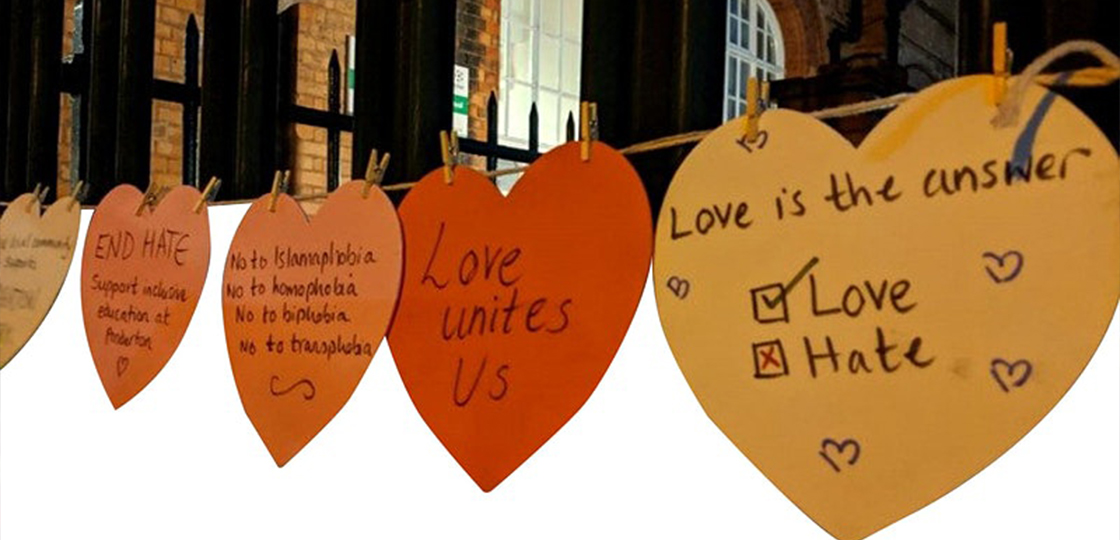 local community
END HATE
Support inclusive
education at
Anderton
No to Islamaphobia
No to homophobia
No to biphobia
No to transphobia
Love
unites
Us
Love is the answer
Love
Hate